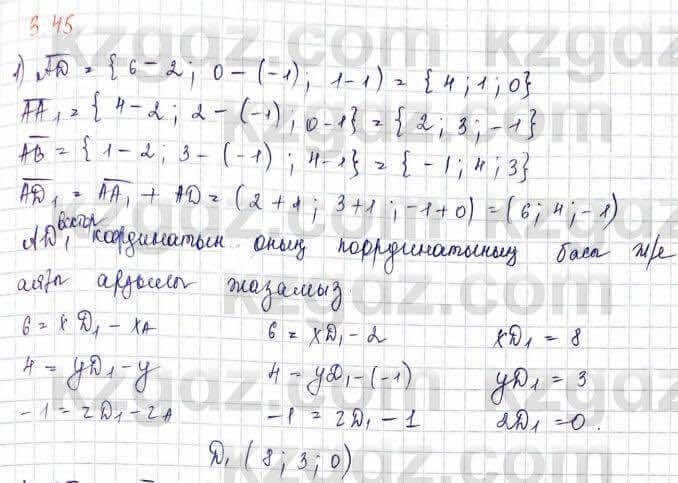 3 45
1) AD = { 6 - 2 ; 0 - (-1) ; 1-1 ) = { 4 ; 1 ; 0 }
AA₁ = { 4 - 2 ; 2 - (-1) ; 0-1 } = { 2 ; 3 ; -1 }
AB = { 1 - 2 ; 3 - (-1) ; 4-1 } = { -1 ; 4 ; 3 }
AD₁ = AA₁ + AD = (2+1 ; 3+1 ; -1+0) = (6 ; 4 ; -1)
AD₁ вектор координатын оның координатының басы ж/е
арқылы жазамыз.
6 = xD₁ - xA 6 = xD₁ - 2 xD₁ = 8
4 = yD₁ - y 4 = yD₁ - (-1) yD₁ = 3
-1 = zD₁ - zA -1 = zD₁ - 1 zD₁ = 0.
D₁ ( 8 ; 3 ; 0 )
kzgdz.com